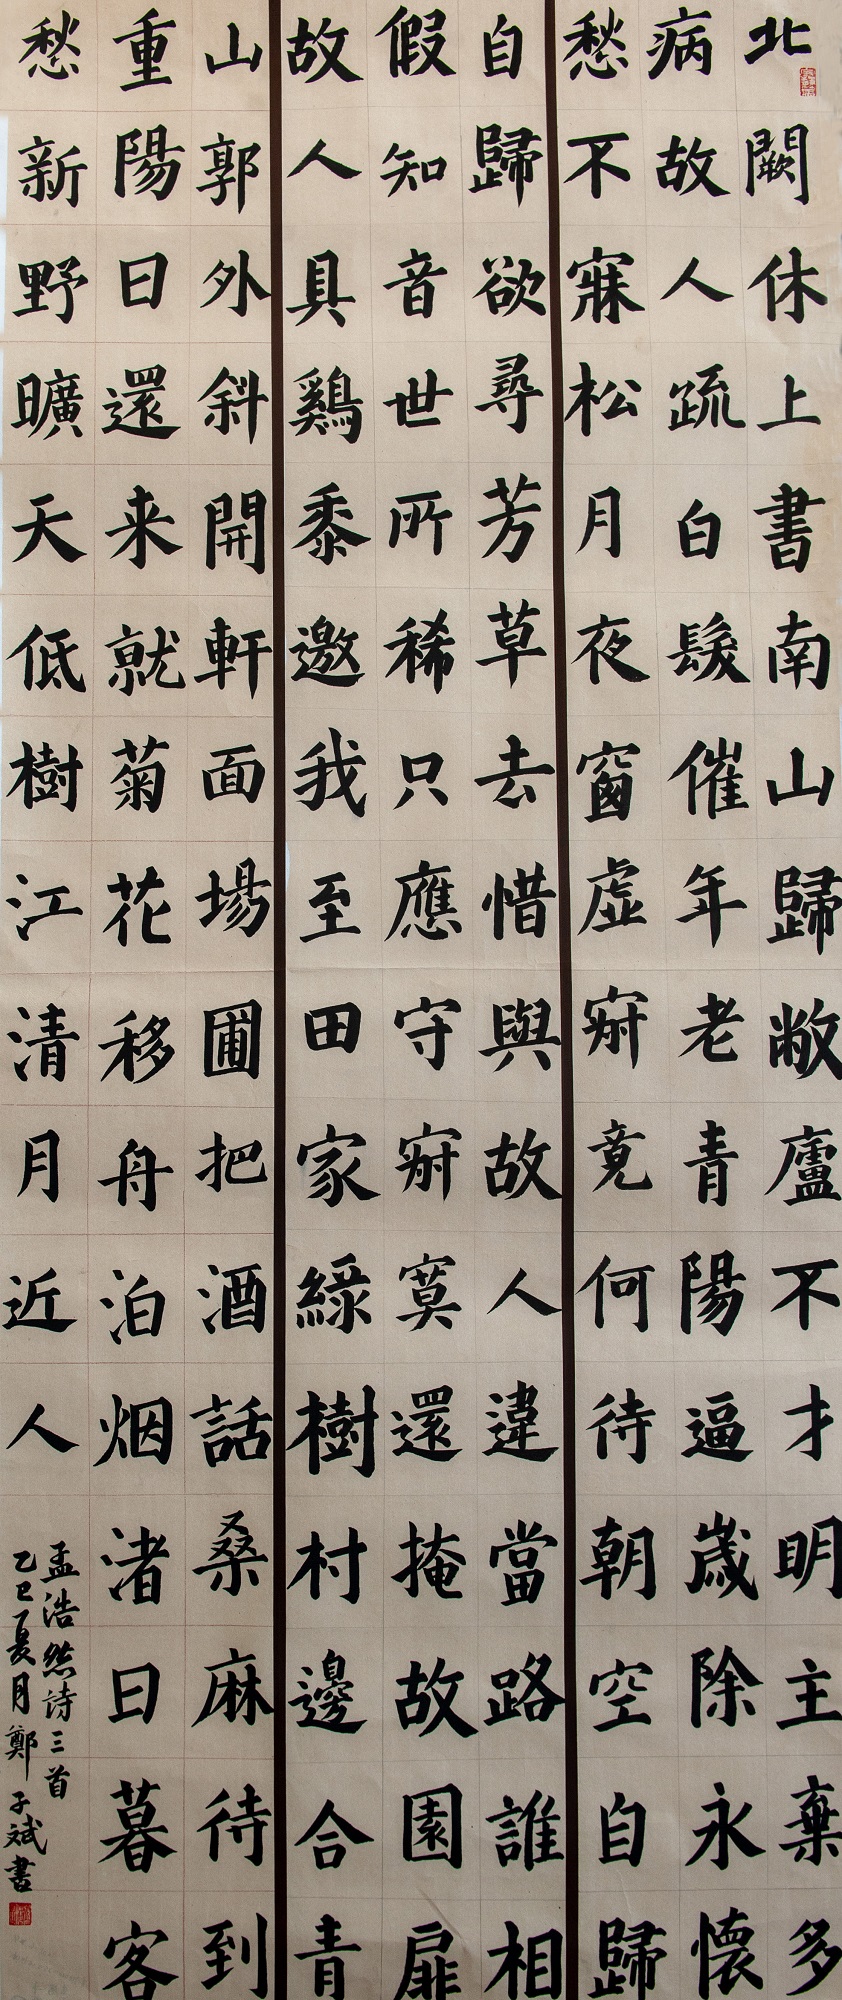 北闕休上書南山歸敝廬不才明主棄多
病故人疏白髮催年老青陽逼歲除永懷
愁不寐松月夜窗虛寂竟何待朝空自歸
自歸欲尋芳草去惜與故人違當路誰相
假知音世所稀只應守寂寞還掩故園扉
故人具鷄黍邀我至田家綠樹村邊合青
山郭外斜開軒面場圃把酒話桑麻待到
重陽日還来就菊花移舟泊烟渚日暮客
愁新野曠天低樹江清月近人
孟浩然詩三首
乙巳夏月鄭子斌書